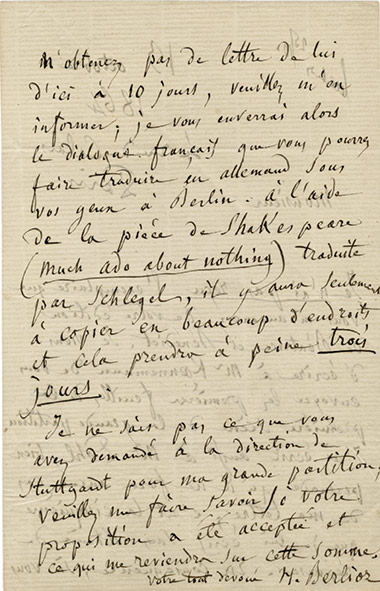 n'obtenez pas de lettre de lui
d'ici à 10 jours, veuillez m'en
informer; je vous enverrai alors
le dialogue français que vous pourrez
faire traduire en allemand sous
vos yeux à Berlin. à l'aide
de la pièce de Shakespeare
(much ado about nothing) traduite
par Schlegel, il y aura seulement
à copier en beaucoup d'endroits
et cela prendra à peine trois
jours.
Je ne sais pas ce que vous
avez demandé à la direction de
Stuttgardt pour ma grande partition;
veuillez me faire savoir si votre
proposition a été acceptée et
ce qui me reviendra sur cette somme.
votre tout dévoué H. Berlioz